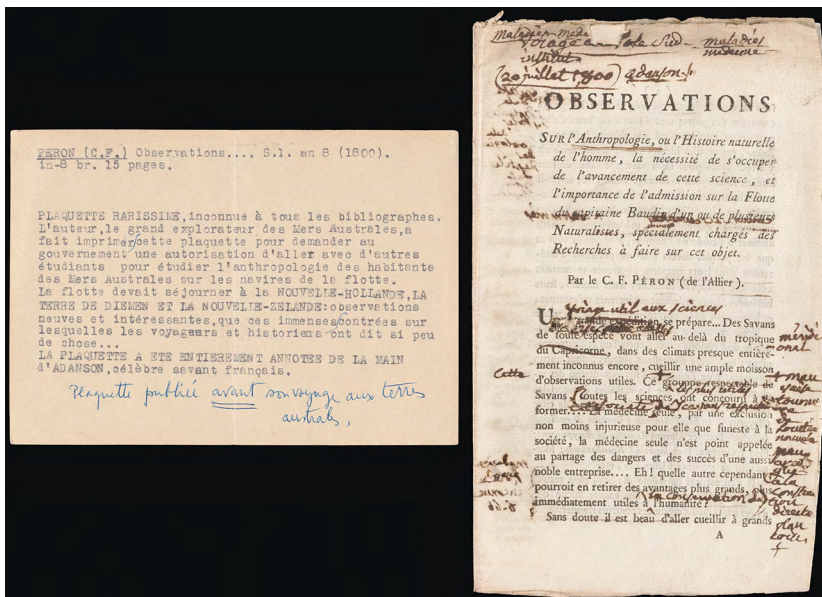 PERON (C.F.) Observations.... S.l. an 8 (1800).
in-8 br. 15 pages.
PLAQUETTE RARISSIME,inconnue à tous les bibliographes.
L'auteur,le grand explorateur des Mers Australes,a
fait imprimer cette plaquette pour demander au
gouvernement une autorisation d'aller avec d'autres
étudiants pour étudier l'anthropologie des habitants
des Mers Australes sur les navires de la flotte.
La flotte devait séjourner à la NOUVELLE-HOLLANDE,LA
TERRE DE DIEMEN ET LA NOUVELLE-ZELANDE:observations
neuves et intéressantes,que ces immenses contrées sur
lesquelles les voyageurs et historiens ont dit si peu
de chose...
LA PLAQUETTE A ETE ENTIEREMENT ANNOTEE DE LA MAIN
d'ADANSON,célèbre savant français.
Plaquette publiée avant son voyage aux terres
australes.
maladies
voyage au Pole Sud maladies
institut medecine
(20 juillet 1800) adanson
OBSERVATIONS
SUR l'Anthropologie, ou l'Histoire naturelle
de l'homme, la nécessité de s'occuper
de l'avancement de cette science, et
l'importance de l'admission sur la Flotte
du capitaine Baudin d'un ou de plusieurs
Naturalistes, spécialement chargés des
Recherches à faire sur cet objet.
Par le C. F. PÉRON (de l'Allier).
voyage util aux sciences
Une grande expédition se prépare... Des Savans
de toute espèce vont aller au-delà du tropique
du Capricorne, dans des climats presque entière-
ment inconnus encore, cueillir une ample moisson
Cette
d'observations utiles. Ce grouppe respectable de
Savans (toutes les sciences ont concouru à le
former.... La médecine seule, par une exclusion
non moins injurieuse pour elle que funeste à la
société, la médecine seule n'est point appelée
au partage des dangers et des succès d'une aussi
noble entreprise.... Eh ! quelle autre cependant
pourroit en retirer des avantages plus grands, plus
immédiatement utiles à la conservation de l'humanité ?
Sans doute il est beau d'aller cueillir à grands
A